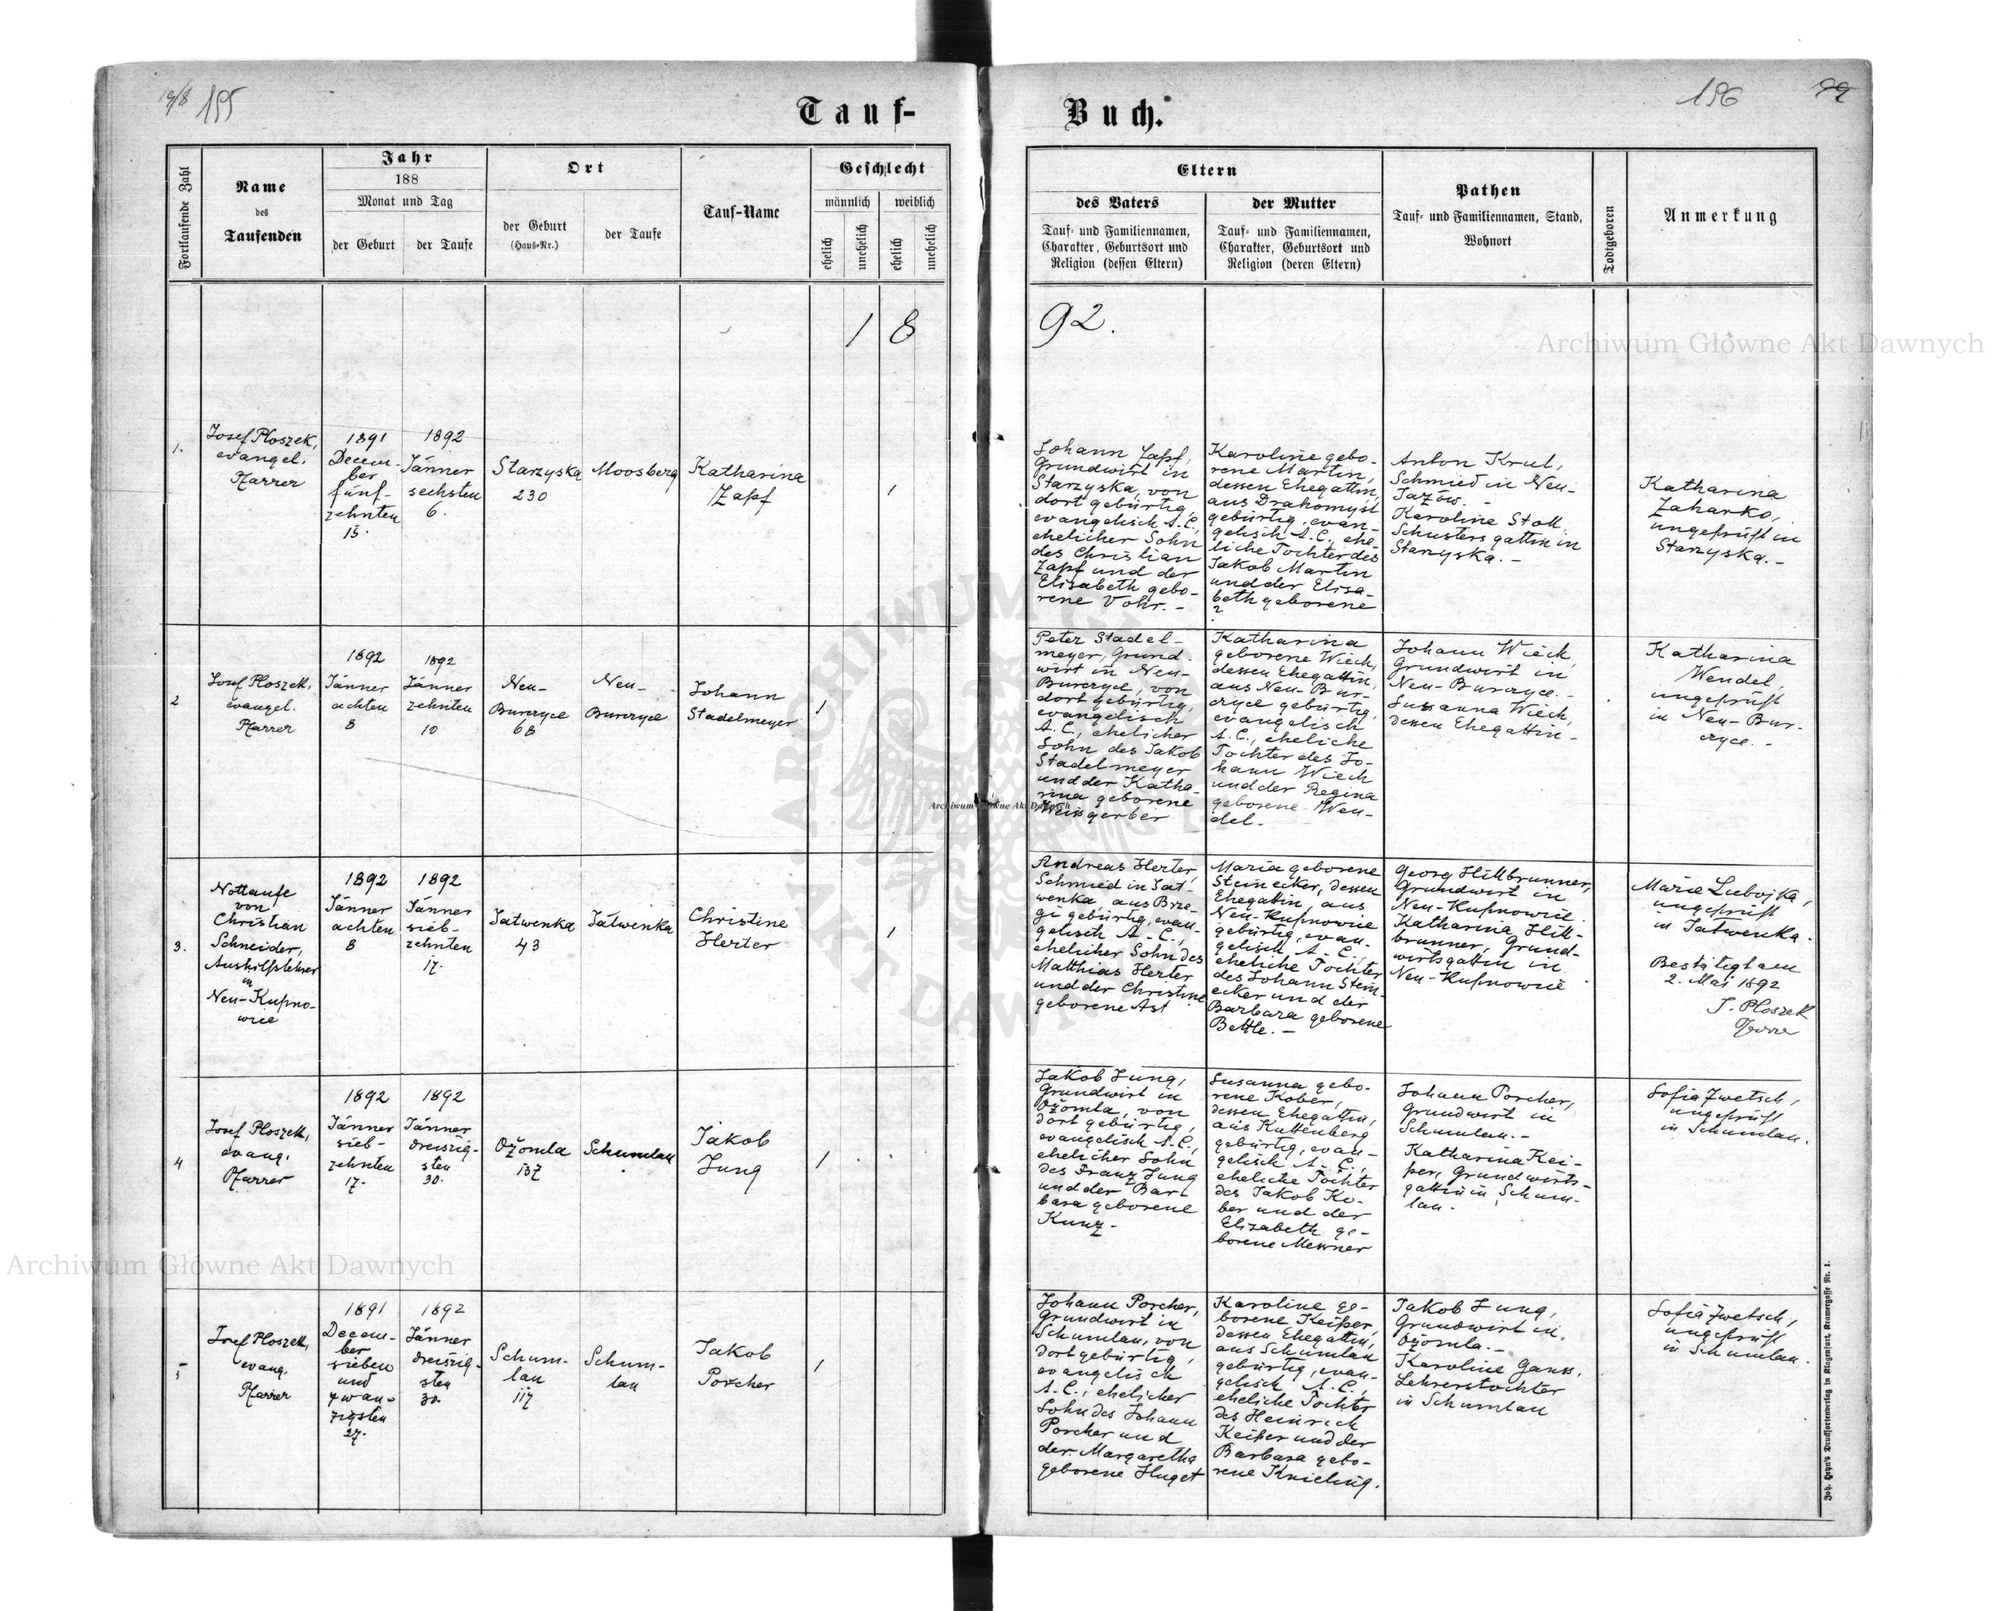 19/8 155
Tauf-
Buch.
156 99
Fortlaufende Zahl
Name
des
Taufenden
Jahr
188
Monat und Tag
der Geburt
der Taufe
Ort
der Geburt
(Haus-Nr.)
der Taufe
Tauf-Name
Geschlecht
männlich
weiblich
ehelich
unehelich
ehelich
unehelich
Eltern
des Vaters
Tauf- und Familiennamen,
Charakter, Geburtsort und
Religion (dessen Eltern)
der Mutter
Tauf- und Familiennamen,
Charakter, Geburtsort und
Religion (deren Eltern)
Pathen
Tauf- und Familiennamen, Stand,
Wohnort
Todtgeboren
Anmerkung
1 8
92.
1.
Josef Ploszek,
evangel.
Pfarrer
1891
Decem-
ber
fünf-
zehnten
15.
1892
Jänner
sechsten
6.
Starzyska
230
Moosberg
Katharina
Zapf
1
Johann Zapf,
Grundwirt in
Starzyska, von
dort gebürtig,
evangelisch A.C.,
ehelicher Sohn
des Christian
Zapf und der
Elisabeth gebo-
rene Vohr. -
Karoline gebo-
rene Martin,
dessen Ehegattin,
aus Drahomysl
gebürtig, evan-
gelisch A.C., ehe-
liche Tochter des
Jakob Martin
und der Elisa-
beth geborene
?
Anton Krul,
Schmied in Neu-
Jazow. -
Karoline Stoll,
Schustersgattin in
Starzyska. -
Katharina
Zaharko,
ungeprüft in
Starzyska. -
2
Josef Ploszek,
evangel.
Pfarrer
1892
Jänner
achten
8
1892
Jänner
zehnten
10
Neu-
Burczyce
68
Neu-
Burczyce
Johann
Stadelmeyer
1
Peter Stadel-
meyer, Grund-
wirt in Neu-
Burczyce, von
dort gebürtig,
evangelisch
A.C., ehelicher
Sohn des Jakob
Stadelmeyer
und der Katha-
rina geborene
Weissgerber
Katharina
geborene Wiech,
dessen Ehegattin,
aus Neu-Bur-
czyce gebürtig,
evangelisch
A.C., eheliche
Tochter des Jo-
hann Wiech
und der Regina
geborene Wen-
del. -
Johann Wiech,
Grundwirt in
Neu-Burczyce. -
Susanna Wiech,
dessen Ehegattin -
Katharina
Wendel,
ungeprüft
in Neu-Bur-
czyce. -
3.
Nottaufe
von
Christian
Schneider,
Aushilfslehrer
in
Neu-Kupno-
wice
1892
Jänner
achten
8
1892
Jänner
sieb-
zehnten
17.
Jatwenka
43
Jatwenka
Christine
Herter
1
Andreas Herter,
Schmied in Jat-
wenka, aus Brze-
gi gebürtig, evan-
gelisch A.C.,
ehelicher Sohn des
Matthias Herter
und der Christine
geborene Ast
Maria geborene
Steinecker, dessen
Ehegattin, aus
Neu-Kupnowice
gebürtig, evan-
gelisch A.C.,
eheliche Tochter
des Johann Stein-
ecker und der
Barbara geborene
Bettle. -
Georg Hillbrunner,
Grundwirt in
Neu-Kupnowice.
Katharina Hill-
brunner, Grund-
wirtsgattin in
Neu-Kupnowice
Marie
ungeprüft
in Jatwenka.
Bestätigt am
2. Mai 1892
J. Ploszek
4
Josef Ploszek,
evang.
Pfarrer
1892
Jänner
sieb-
zehnten
17.
1892
Jänner
dreiszig-
sten
30.
Ožomla
137
Schumlau
Jakob
Jung
1
Jakob Jung,
Grundwirt in
Ožomla, von
dort gebürtig,
evangelisch A.C.,
ehelicher Sohn
des Franz Jung
und der Bar-
bara geborene
Kunz -
Susanna gebo-
rene Kober,
dessen Ehegattin,
aus Kuttenberg
gebürtig, evan-
gelisch A.C.,
eheliche Tochter
des Jakob Ko-
ber und der
Elisabeth ge-
borene Messner
Johann Porcher,
Grundwirt in
Schumlau. -
Katharina Kei-
per, Grundwirts-
gattin in Schum-
lau. -
Sofia Zwetsch,
ungeprüft
in Schumlau.
5
Josef Ploszek,
evang.
Pfarrer
1891
Decem-
ber
sieben
und
zwan-
zigsten
27.
1892
Jänner
dreiszig-
sten
30.
Schum-
lau
117
Schum-
lau
Jakob
Porcher
1
Johann Porcher,
Grundwirt in
Schumlau, von
dort gebürtig,
evangelisch
A.C., ehelicher
Sohn des Johann
Porcher und
der Margaretha
geborene Huget
Karoline ge-
borene Keiper,
dessen Ehegattin,
aus Schumlau
gebürtig, evan-
gelisch A.C.,
eheliche Tochter
des Heinrich
Keiper und der
Barbara gebo-
rene Knieling.
Jakob Jung,
Grundwirt in
Ožomla. -
Karoline Gauss,
Lehrerstochter
in Schumlau
Sofia Zwetsch,
ungeprüft
in Schumlau.
Joh. Heyn's Drucksortenverlag in Klagenfurt, Kramergasse Nr. 1.
Archiwum Główne Akt Dawnych
Archiwum Główne Akt Dawnych
Archiwum Główne Akt Dawnych